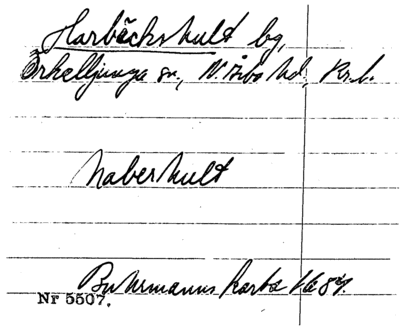 Harbäckshult bg,
Örkelljunga sn, N. Åsbo hd, Kr. l.
haberhult
Buhrmanns karta 1684.
Nr 5507.